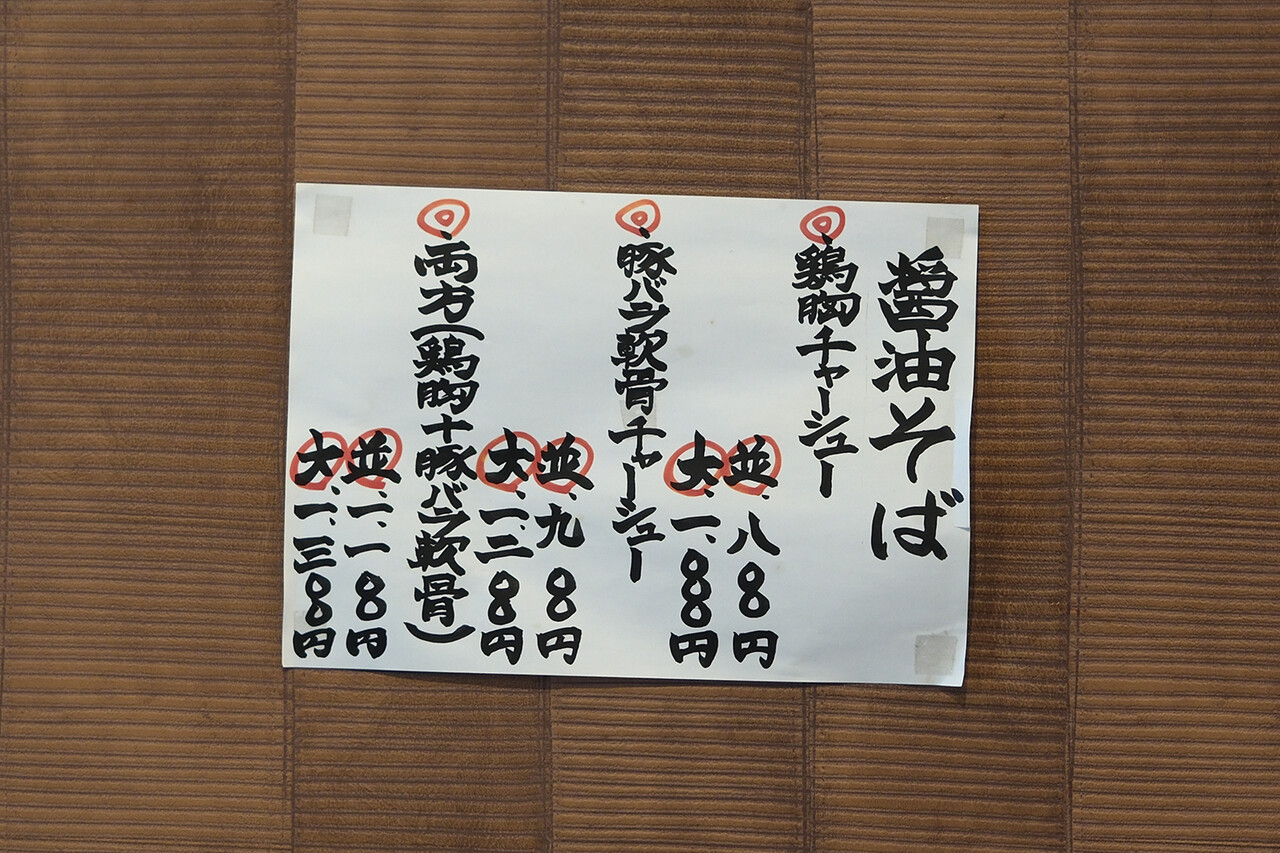 醤油そば
◎鶏胸チャーシュー
並、八〇〇円
大、一、〇〇〇円
◎豚バラ軟骨チャーシュー
並、九〇〇円
大、一、二〇〇円
◎両方(鶏胸+豚バラ軟骨)
並、一、一〇〇円
大、一、三〇〇円